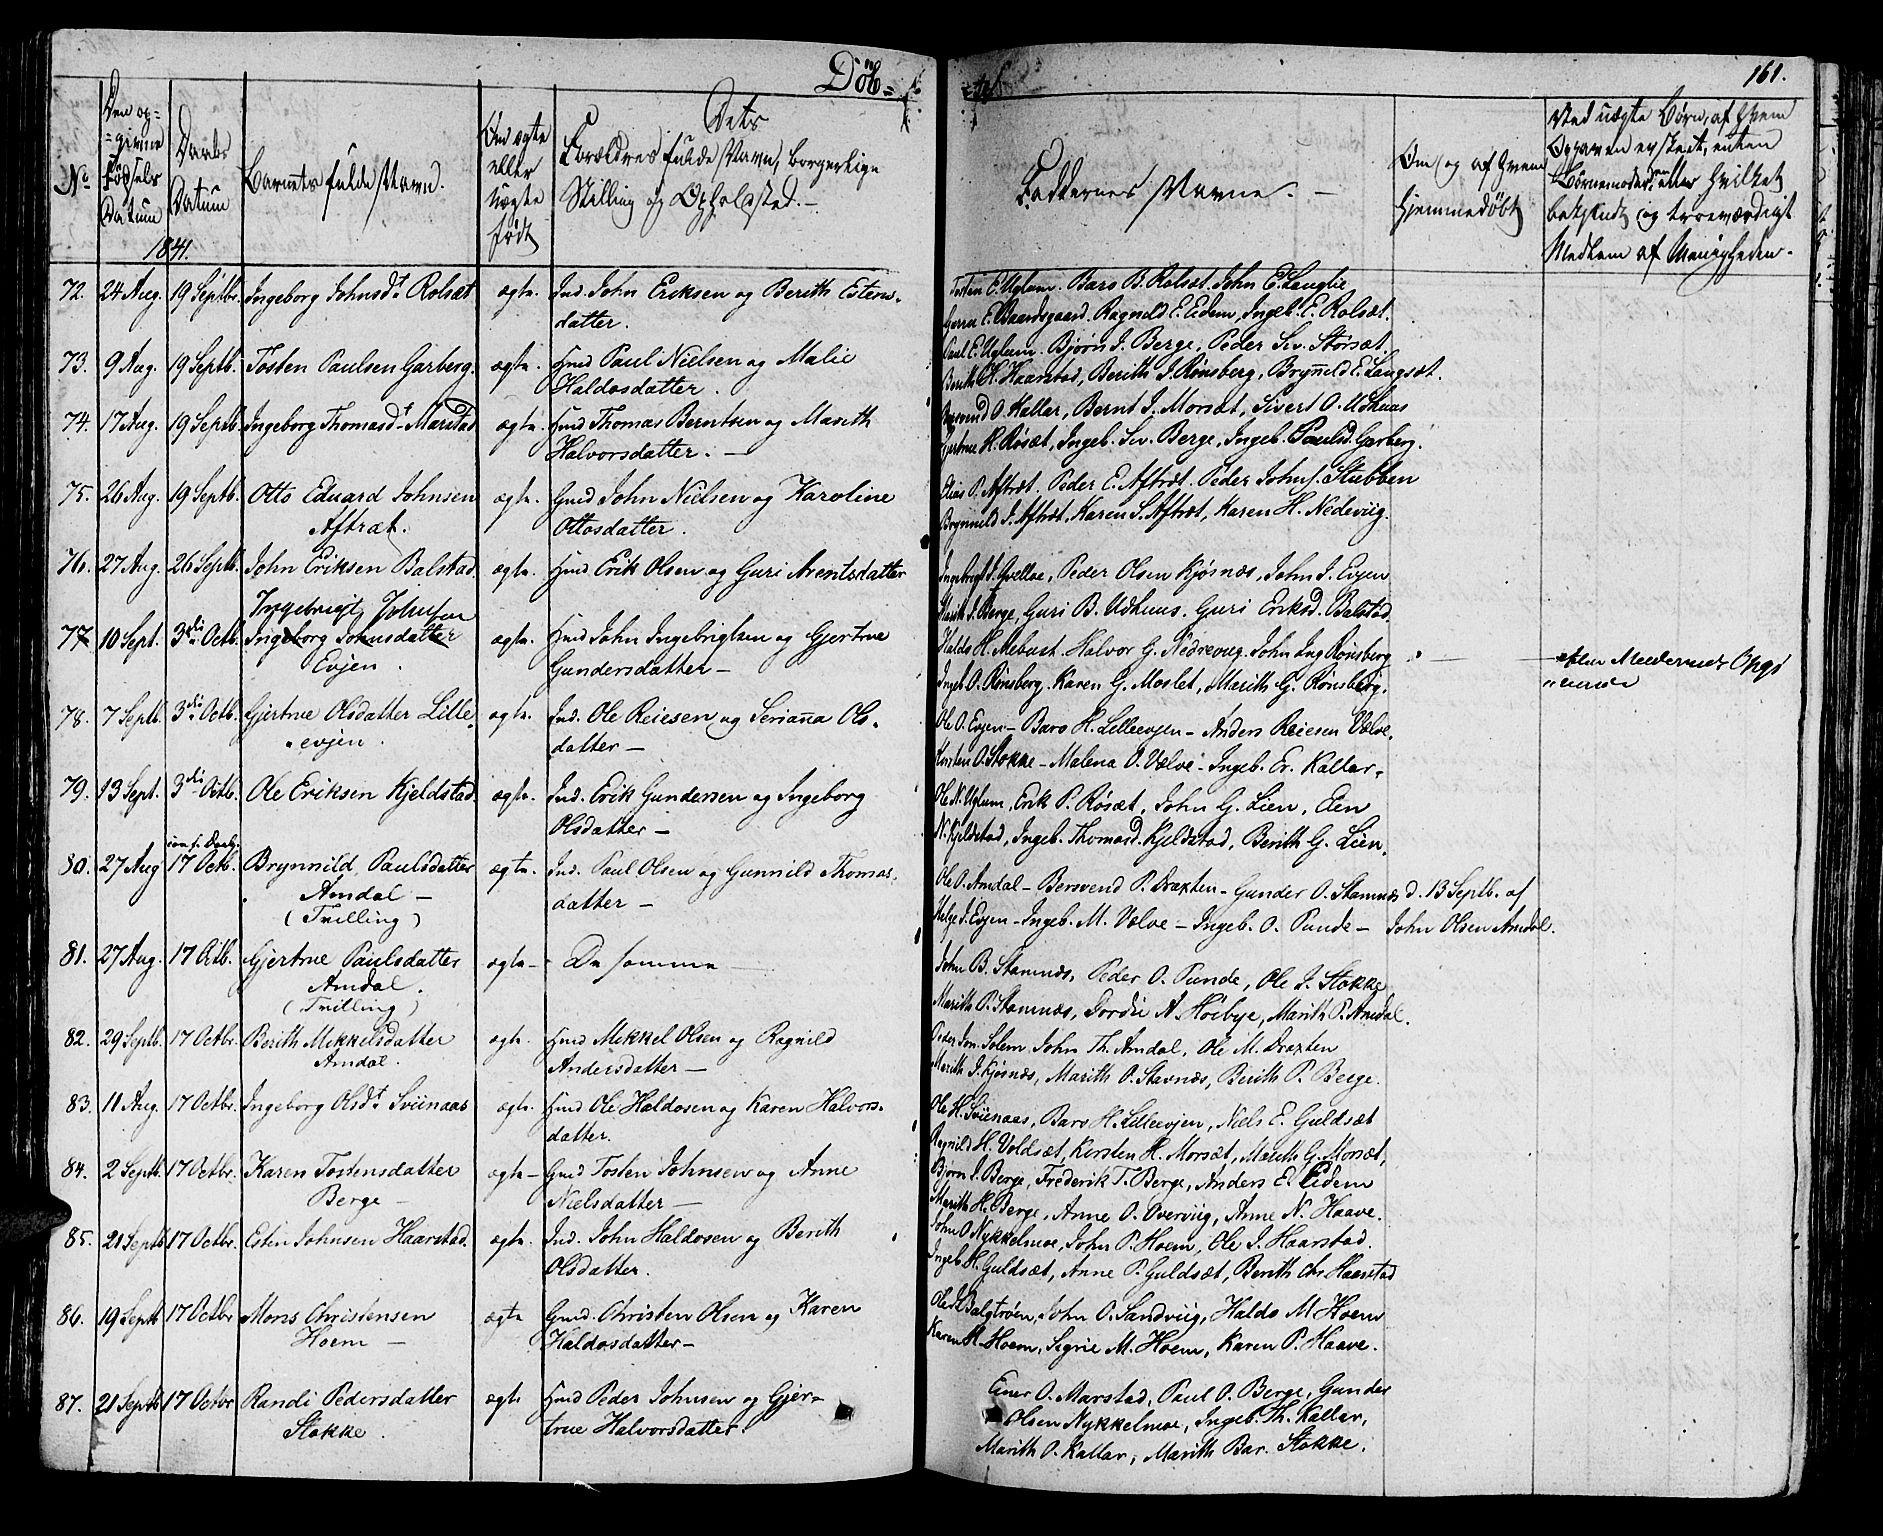 Döb=
161.
No
Den op=
=givne
Födsels
Datum
Daabs
Datum
Barnets fulde Navn.
Om ægte
eller
uægte
födt
Dets
Forældres fulde Navn, borgerlige
Stilling og Opholdsted. —
Faddernes Navne. —
Om og af hvem
hjemmedöbt
Ved uægte Börn, af hvem
Opgaven er skeet, enten
Börnemoderen eller hvilket
bekjendt og troeværdigt
Medlem af Menigheden.
1841.
72. 24 Aug. 19 Septbr. Ingeborg Johnsdt Rolsæt ægte. Ind. John Eriksen og Berith Estens-
datter.
Tosten E. Uglum. Baro B. Rolsæt. John E. Langlie
E. Baardsgaard. Ragnild E. Eidem, Ingeb. E. Rolsæt.
73. 9 Aug. 19 Septb. Tosten Paulsen Garberg. ægte. Hmd Paul Nielsen og Malie
Haldosdatter.
Paul E. Uglum. Björn J. Berge, Peder Siv. Storsæt
Berith H. Haarstad, Berith J. Rönsberg, Brynnild E. Langsæt.
74. 17 Aug. 19 Septb. Ingeborg Thomasdt Marstad ægte. Hmd Thomas Berntsen og Marith
Halvorsdatter. —
O. Kallar, Bernt J. Morsæt, Sivert O. Udhuus
Gjertrue H. Rösæt, Ingeb. Siv. Berge, Ingeb. Paulsd. Garberg.
75. 26 Aug. 19 Septb. Otto Eduard Johnsen ægte. Gmd John Nielsen og Karoline
Aftræt. Ottosdatter.
Elias P. Aftræt. Peder E. Aftræt. Peder Johns. Stubben
Brynnild J. Aftræt, Karen S. Aftræt, Karen H. Nedeviig.
76. 27 Aug. 26 Septb. John Eriksen Balstad ægte. Hmd Erik Olsen og Guri Arentsdatter
Ingebrigt J. Peder Olsen Kjösnæs, John J. Evjen
Marith J. Berge, Guri B. Udhuus. Guri Eriksd. Balstad.
Ingebrigt Johnsen
77 10 Sept. 3die Octb. Ingeborg Johnsdatter ægte. Hmd John Ingebrigtsen og Gjertrue
Evjen. Gundersdatter —
Haldo H. Mebust. Halvor G. Nedreviig. John Ing Rönsberg
Ingeb. O. Rönsberg. Karen G. Moslet, Marith G. Rönsberg.
78. 7 Septb. 3die Octb. Gjertrue Olsdatter Lille- ægte. Ind. Ole Reiesen og Serianna Ols-
evjen. datter —
Ole O. Evjen — Baro H. Lilleevjen — Anders Reiesen Vælve.
Kirsten O. Stokke — Malena O. Vælve — Ingeb. Er. Kallar.
79. 13 Sept. 3die Octb. Ole Eriksen Kjeldstad ægte. Ind. Erik Gundersen og Ingeborg
Olsdatter —
Ole N. Uglum, Erik P. Rösæt, John G. Lien, Een
N. Kjeldstad, Ingeb. Thomasd. Kjeldstad, Berith G. Lien.
80. 27 Aug 17 Octb. Brynnild Paulsdatter ægte. Ind. Paul Olsen og Gunnild Thomas-
Amdal — datter —
(Tvilling)
Ole O. Amdal — Bersvend P. Draxten — Gunder O. Stamnæs d. 13 Septb. af
Helge J. Evjen — Ingeb. M. Vælve — Ingeb. O. Punde — John Olsen Amdal.
81. 27 Aug. 17 Octb. Gjertrue Paulsdatter ægte — De samme —
Amdal.
(Tvilling)
John B. Stamnæs, Peder O. Punde, Ole J. Stokke
Marith P. Stamnæs, Dordie A. Höibye, Marith P. Amdal.
82. 29 Septb. 17 Octbr. Berith Mikkelsdatter ægte. Hmd Mikkel Olsen og Ragnild
Amdal. Andersdatter —
Peder Jon. Solem, John Th. Amdal, Ole M. Draxten
Marith J. Kjösnæs, Marith O. Stavnæs, Berith P. Berge.
83. 11 Aug. 17 Octbr. Ingeborg Olsdt Sviinaas ægte. Hmd Ole Haldosen og Karen Halvors-
datter.
Ole H. Sviinaas, Baro H. Lilleevjen, Niels E. Guldsæt
Ragnild H. Voldsæt, Kirsten H. Morsæt, Marith G. Morsæt,
84. 2 Septb. 17 Octbr. Karen Tostensdatter ægte — Gmd Tosten Johnsen og Anne
Berge — Nielsdatter —
Björn J. Berge, Frederik T. Berge, Anders E. Eidem
Marith H. Berge, Anne O. Overviig, Anne N. Haave.
85. 21 Septb 17 Octbr. Esten Johnsen Haarstad. ægte. Ind. John Haldosen og Berith
Olsdatter.
John O. Nykkelmoe, John P. Hoem, Ole J. Haarstad.
Ingeb. H. Guldsæt, Anne P. Guldsæt, Berith Chr. Haarstad
86. 19 Septb 17 Octbr Mons Christensen ægte Gmd. Christen Olsen og Karen
Hoem — Haldosdatter —
Ole H. Balgtröen, John O. Sandviig, Haldo M. Hoem
Karen H. Hoem, Sigrie M. Hoem, Karen P. Haave.
87. 21 Septb 17 Octbr Randi Pedersdatter ægte Hmd Peder Johnsen og Gjer-
Stokke. true Halvorsdatter.
Einer O. Marstad, Paul O. Berge, Gunder
Olsen Nykkelmoe, Ingeb. Th. Kallar,
Marith O. Kallar, Marith Bar. Stokke.